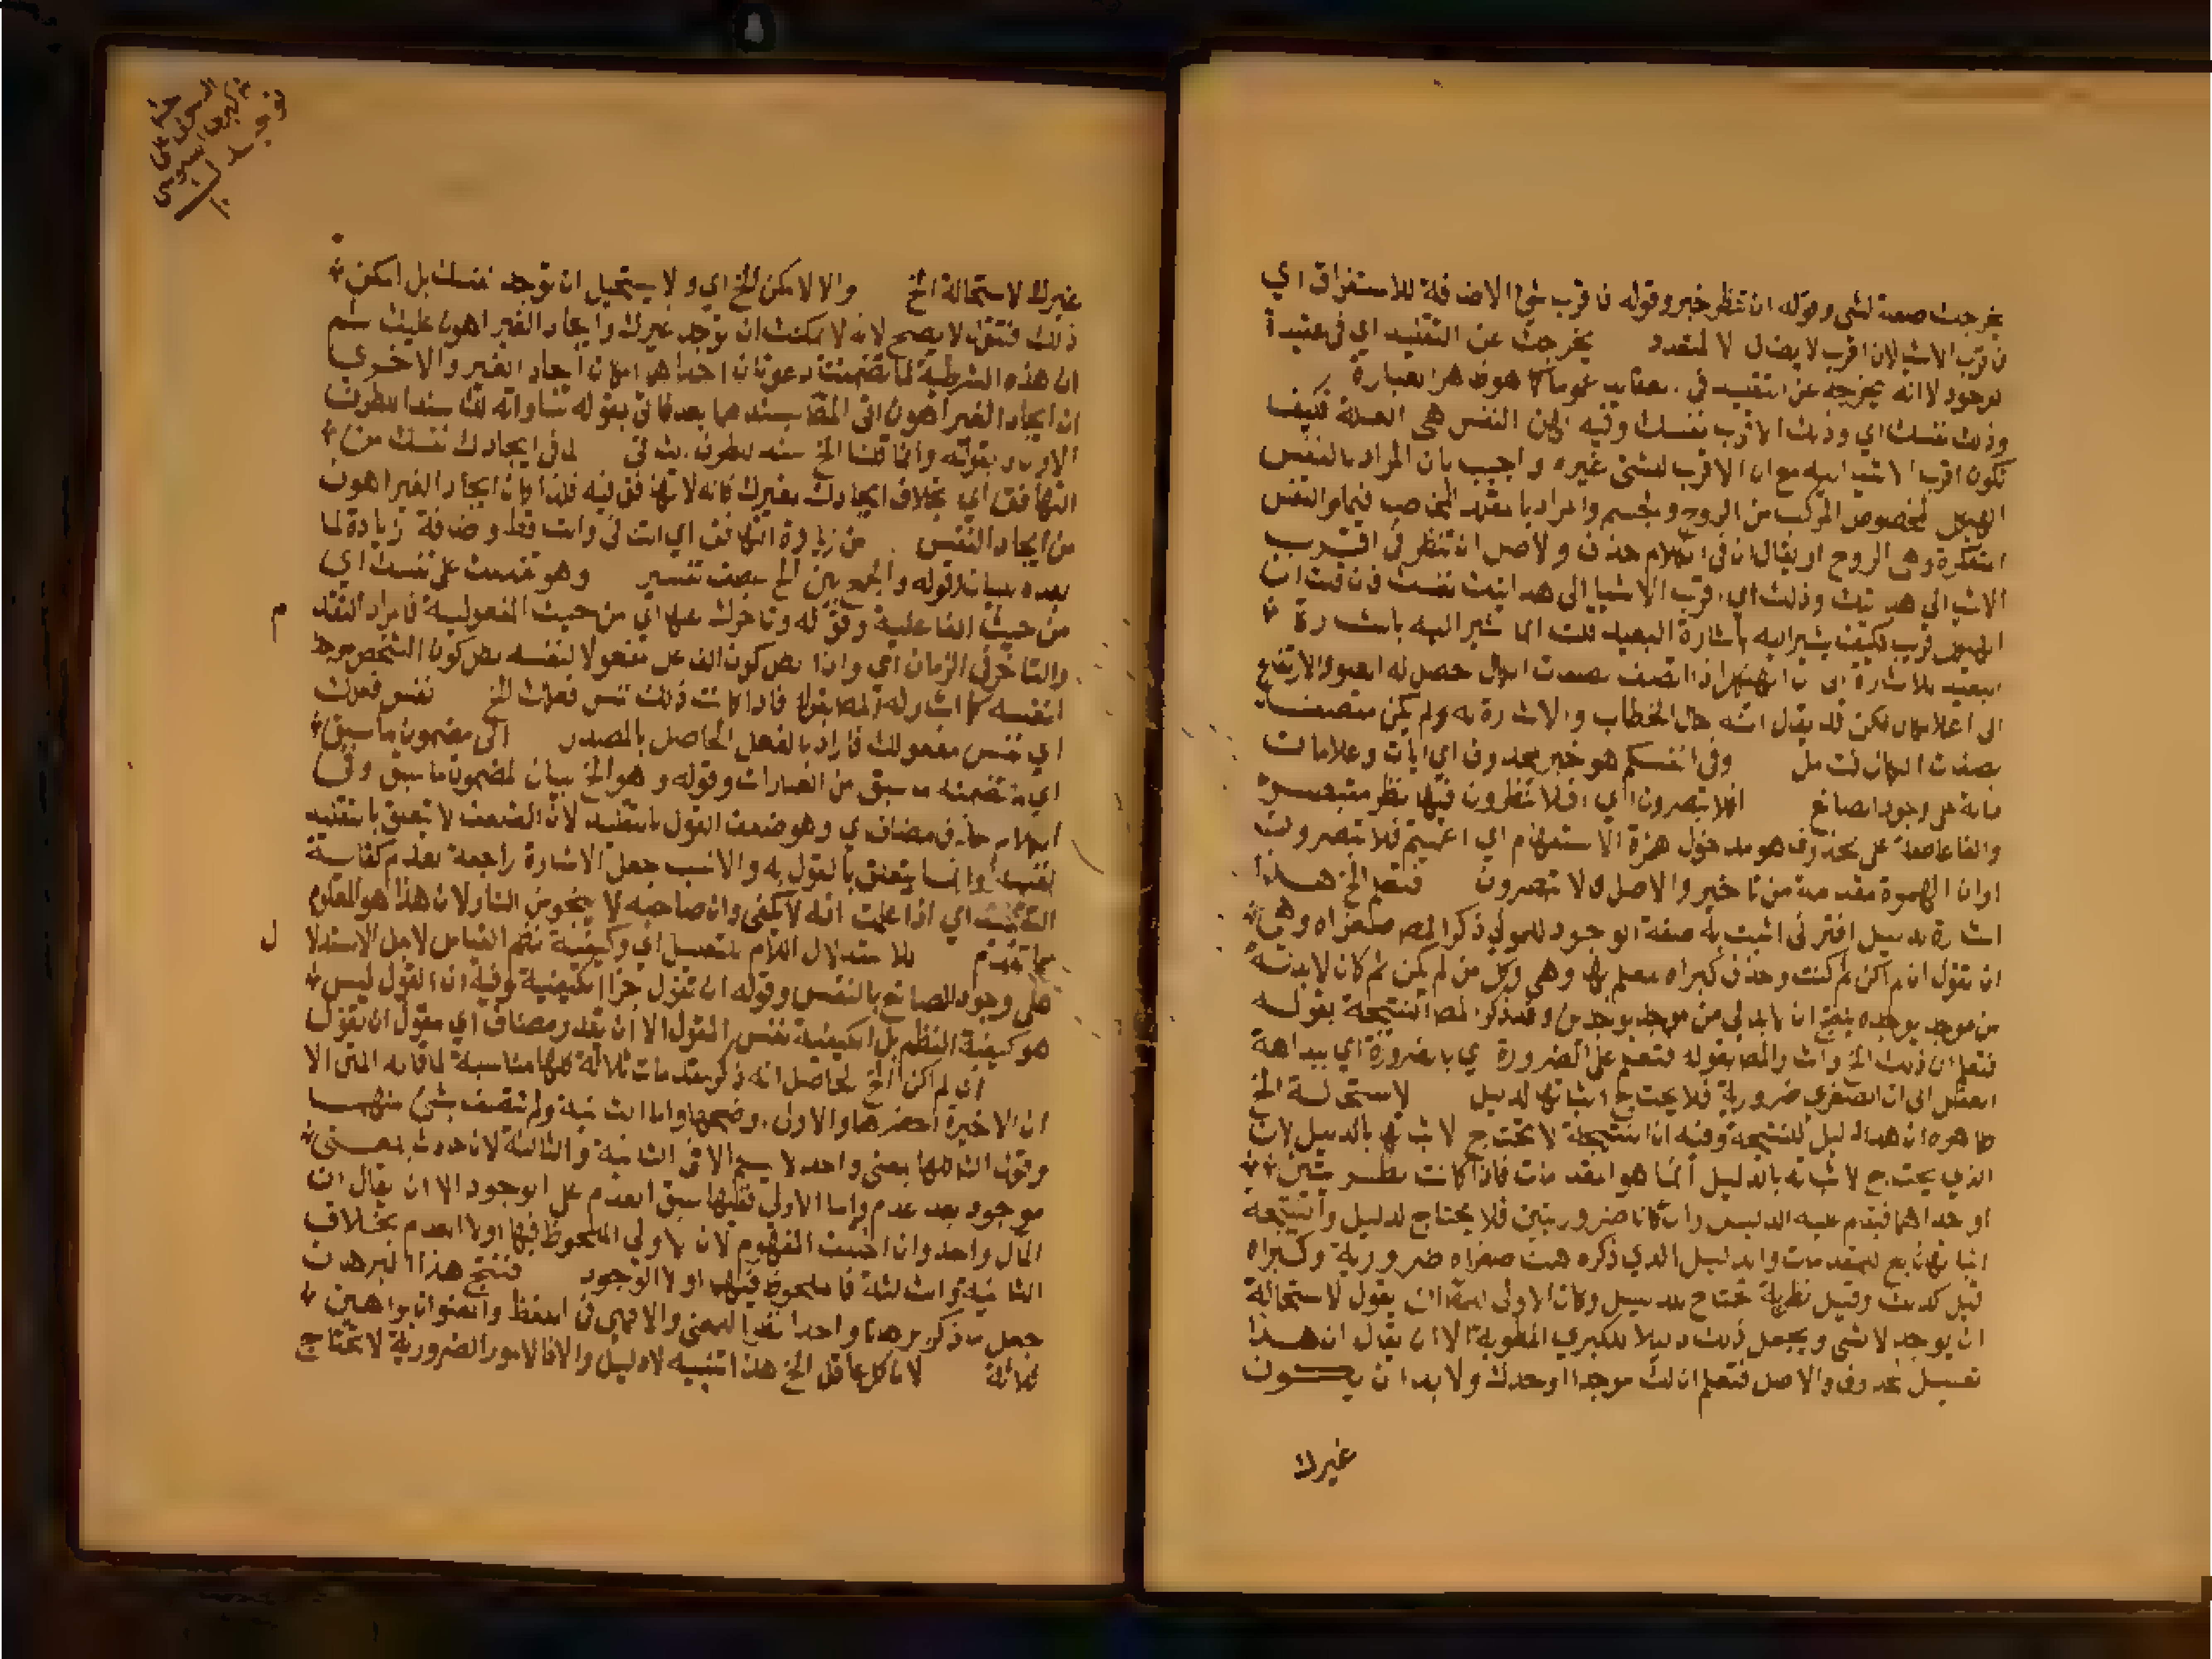 يخرجك صفة لشي وقوله ان تنظر خبر وقوله فاقرب شي الاضافة للاستغراق اي
فاقرب الاشيا لان اقرب لا يضاف الا لمتعدد يخرجك عن التقليد اي في عقيدة
الوجود لا انه يخرجه عن التقليد في العقايد عموما كما هو ظاهر العبارة
وذلك نفسك اي وذلك الاقرب نفسك وفيه ان النفس هي العين فكيف
تكون اقرب الاشيا اليه مع ان الاقرب للشي غيره واجيب بان المراد بالنفس
الهيكل المخصوص المركب من الروح والجسم والمراد بالمخاطب فيما والنفس
المتفكرة وهي الروح او يقال ان في الكلام حذف والاصل ان تنظر في اقرب
الاشيا الى هدايتك وذلك اي اقرب الاشيا الى هدايتك نفسك فان قلت ان
الهيكل قريب فكيف يشير اليه باشارة البعيد قلت انما اشير اليه باشارة
البعيد للاشارة الى ان الهيكل اذا اتصف بصفات الكمال حصل له العلو والارتفاع
الى اعلا مكان لكن قد يقال انه حال الخطاب والاشارة له ولم يكن متصفا
بصفات الكمال فتامل وفي انفسكم هو خبر لمحذوف اي ايات وعلامات
دالة على وجود الصانع افلا تبصرون اي افلا تنظرون فيها نظر متبصر
والفا عاطفة على محذوف هو مدخول همزة الاستفهام اي اعميتم فلا تبصرون
او ان الهمزة مقدمة من تاخير والاصل فالا تبصرون فتعلم الخ هذا
اشارة لدليل اقتراني اثبت به صفة الوجود للمولى ذكر المص صغراه وهي
ان تقول ان لم اكن ثم كنت وحذف كبراه للعلم بها وهي وكل من لم يكن ثم كان لا بد له
من موجد يوجده ينتج انا لا بد لي من موجد يوجدني وقد ذكر المص النتيجة بقوله
فتعلم ان لك الخ واشار المص بقوله فتعلم على الضرورة اي بالضرورة اي ببداهة
العقل الى ان الصغرى ضرورية فلا يحتاج اثباتها لدليل لاستحالة الخ
ظاهره ان هذا دليل للنتيجة وفيه ان النتيجة لا تحتاج لاثباتها بالدليل لان
الذي يحتاج لاثباته بالدليل انما هو المقدمات فاذا كانت نظريتين
او احداهما فيقام عليه الدليل وان كانا ضروريتين فلا يحتاج لدليل والنتيجة
اثباتها تابع للمقدمات والدليل الذي ذكره هنا صغراه ضرورية وكبراه
قيل كذلك وقيل نظرية تحتاج لدليل وكان الاولى للمص ان يقول لاستحالة
ان يوجد لا شي ويجعل ذلك دليلا للكبرى المطوية الا ان يقال ان هذا
تعليل لمحذوف والاصل فتعلم ان لك موجدا اوجدك ولا بد ان يكون
غيرك
غيرك لاستحالة الخ والا لامكن الخ اي ولا يستحيل ان توجد نفسك بل امكن
ذلك فنقول لا يصح لانه لا يمكنك ان توجد غيرك وايجاد الغير اهون عليك ثم
ان هذه الشرطية لما تضمنت دعوتان احداهما امكان ايجاد الغير والاخرى
ان ايجاد الغير اهون اتى المص بسندهما بعد فاتى بقوله لمساواته لك سندا للطرف
الاول وبقوله وانما قلنا الخ سند للطرف الثاني لما في ايجادك نفسك من
التهافت اي بخلاف ايجادك لغيرك فانه لا تهافت فيه فلذا كان ايجاد الغير اهون
من ايجاد النفس من زيادة التهافت اي
بعده بيانية وقوله والجمع بين الخ عطف تفسير وهو تقدمك على نفسك اي
من حيث الفاعلية وقوله وتاخرك عنها اي من حيث المفعولية فالمراد التقدم
والتاخر في الزمان اي واذا بطل كون الفاعل مفعولا لنفسه بطل كون الشخص موجدا
لنفسه كما اشار له المص بقوله فاذا كانت ذلك نفس فعلك الخ نفس فعلك
اي نفس مفعولك فاراد بالفعل الحاصل بالمصدر الى مضمون ما سبق
اي ما تضمنه ما سبق من العبارات وقوله وهو الخ بيان لمضمون ما سبق وفي
الكلام حذف مضاف اي وهو ضعف القول بالتقليد لان الضعف لا يتعلق بالتقليد
نفسه وانما يتعلق بالقول به والانسب جعل الاشارة راجعة لعدم كفاية
التقليد اي اذا علمت انه لا يكفي وان صاحبه لا ينجو من النار لان هذا هو المعلوم
مما تقدم للاستدلال اللام للتعليل اي وكيفية نظم القياس لاجل الاستدلال
على وجود الصانع بالنفس وقوله ان تقول خبر الكيفية وفيه ان القول ليس
هو كيفية النظم بل الكيفية نفس المقول الا ان يقدر مضاف اي مقول ان تقول
اني لم اكن الخ الحاصل انه ذكر مقدمات ثلاثة كلها مناسبة لما قاله المتن الا
ان الاخيرة اخصرها والاولى اوضحها واما الثانية ولم تتصف بشي منهما
وقوله الثلاثة كلها بمعنى واحد لا يسلم الا في الثانية والثالثة لان حادث بمعنى
موجود بعد عدم واما الاولى ففيها سبق العدم على الوجود الا ان يقال ان
المآل واحد وان اختلف المفهوم لان الاولى الملحوظ فيها اولا العدم بخلاف
الثانية والثالثة فالملحوظ فيهما اولا الوجود فنتج هذا البرهان
جعل ما ذكر برهانا واحدا نظرا للمعنى والا فهي في اللفظ والعنوان براهين
ثلاثة لان كل عاقل الخ هذا تنبيه لا دليل والا فالامور الضرورية لا تحتاج